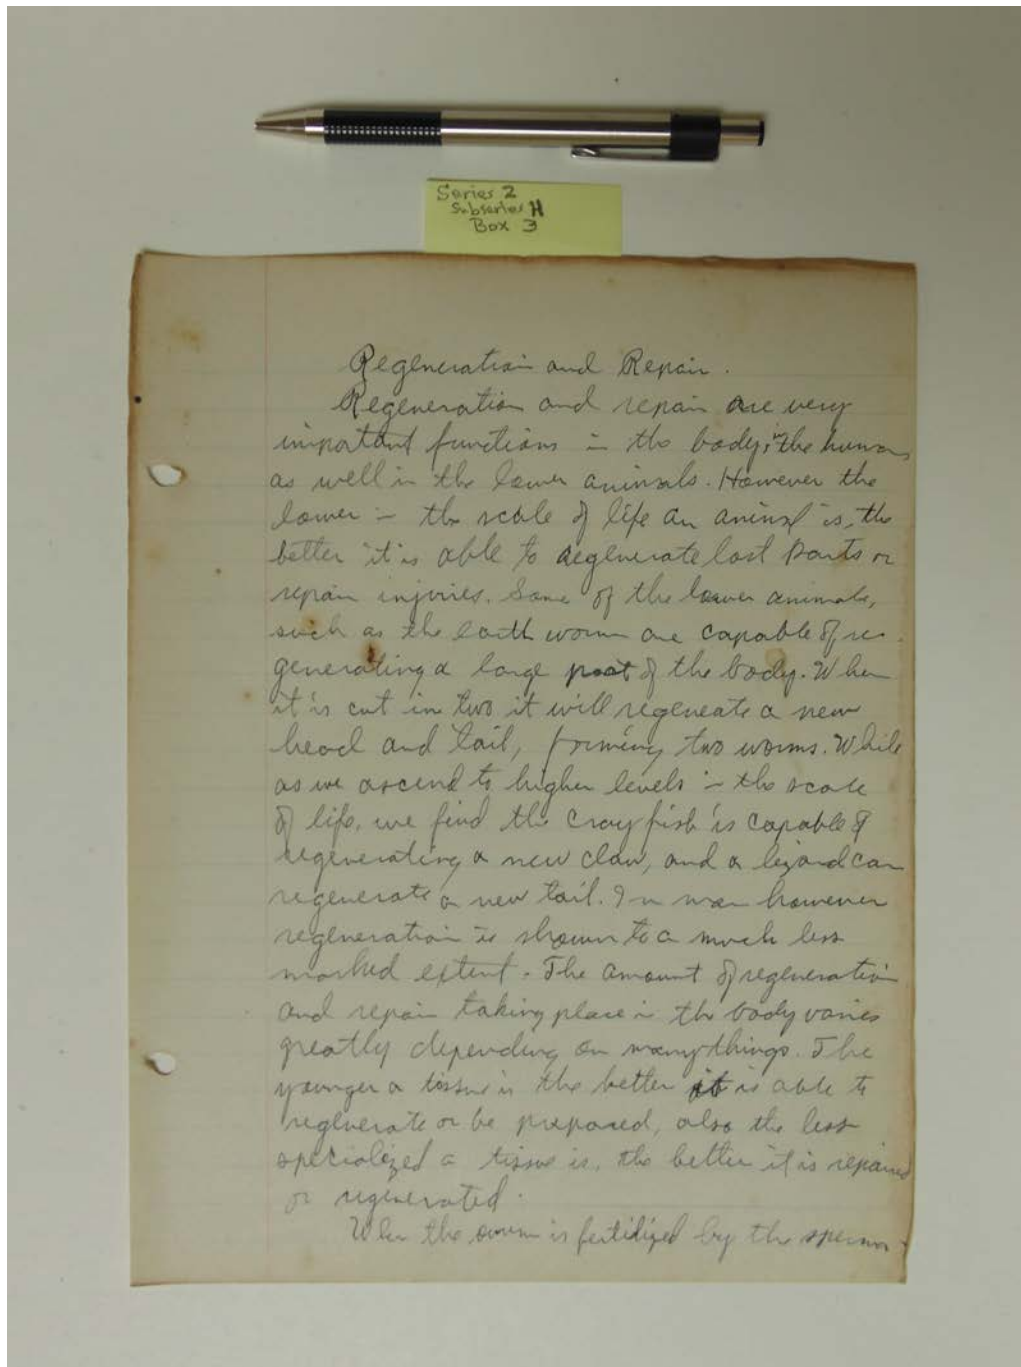 Series 2
Subseries H
Box 3
Regeneration and Repair.
Regeneration and repair are very
important functions in the body, in the human
as well in the lower animals. However the
lower in the scale of life an animal is, the
better it is able to regenerate lost parts or
repair injuries. Some of the lower animals,
such as the earth worm are capable of re-
generating a large part of the body. When
it is cut in two it will regeneate a new
head and tail, forming two worms. While
as we ascend to higher levels in the scale
of life, we find the cray fish is capable of
regenerating a new claw, and a lizard can
regenerate a new tail. In man however
regeneration is shown to a much less
marked extent. The amount of regeneration
and repair taking place in the body varies
greatly depending on many things. The
younger a tissue is the better it is able to
regenerate or be prepared, also the less
specialized a tissue is, the better it is repaired
or regenerated.
When the ovum is fertilized by the sperma-